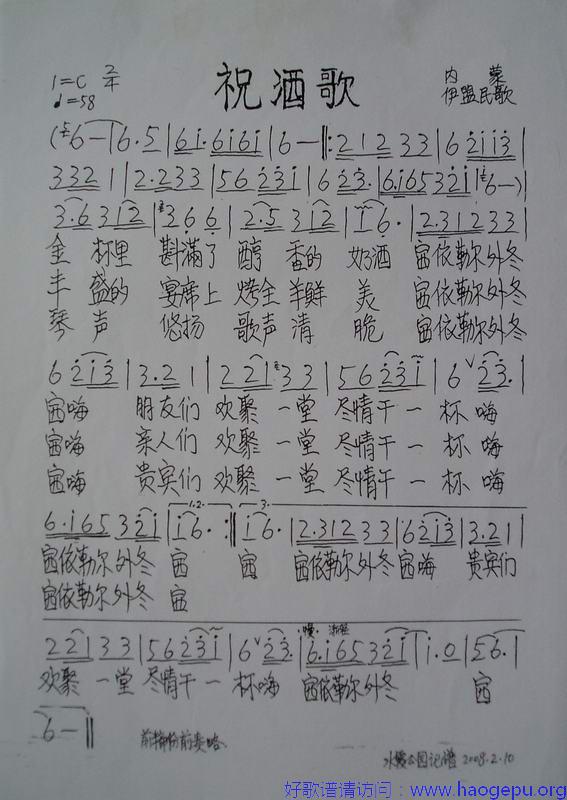 1=C 2/4
♩=58
祝酒歌
内 蒙
伊盟民歌
(6 — | 6· 5 | 6i· 6i6i | 6 — ‖: 212 33 | 6 2ii3 |
332 1 | 2·233 | 56 231 | 6 23· | 6·i65 32i | 6 — )
3·6 312 | 3 6 6 | 2·5 312 | i 6· | 2·312 33 |
金 杯里 斟满了 醇 香的 奶酒 依勒尔外冬
丰 盛的 宴席上 烤全 羊鲜 美 依勒尔外冬
琴 声 悠扬 歌声 清 脆 依勒尔外冬
6 2i3 | 3·2 1 | 221 33 | 56 23i | 6 ∨ 23· |
嗨 朋友们 欢聚 一堂 尽情干一 杯 嗨
嗨 亲人们 欢聚 一堂 尽情干一 杯 嗨
嗨 贵宾们 欢聚 一堂 尽情干一 杯 嗨
6·i65 32i | 1.2. i6· :‖ 3. i6· | 2·312 33 | 6 2i3 | 3·2 1 |
依勒尔外冬 依勒尔外冬 嗨 贵宾们
依勒尔外冬
慢·
221 33 | 56 23i | 6 ∨ 23· | 6·i65 32i | i·0 | 56· |
欢聚 一堂 尽情干一 杯嗨 依勒尔外冬
6 — ‖
前奏略
公园记谱 2008.2.10
好歌谱请访问：www.haogepu.org